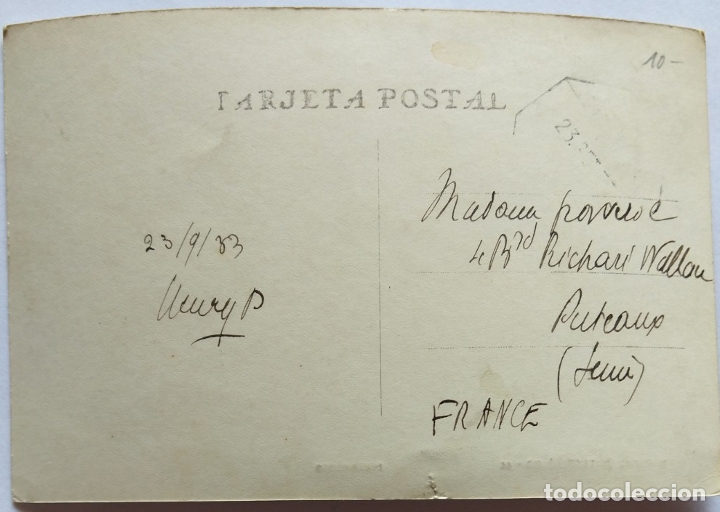 10-
TARJETA POSTAL
23.
23/9/53
Henry P
Madame
4 Bvd Richard Wallace
Puteaux
(Seine)
FRANCE
todocoleccion.net